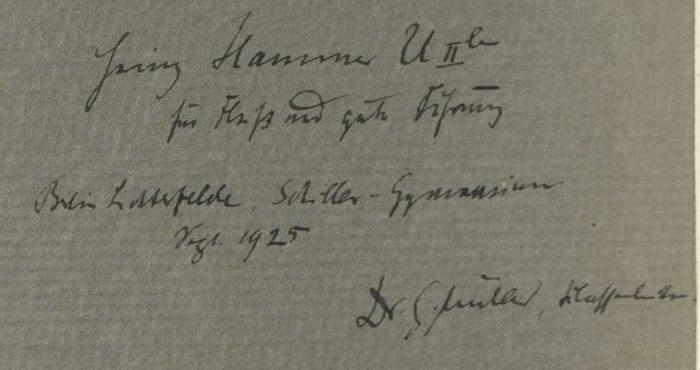 Heinz Hammer U II b
für Fleiß und gute Führung
Berlin Lichterfelde, Schiller-Gymnasium
Sept. 1925
Dr. G. Müller, Klassenleiter